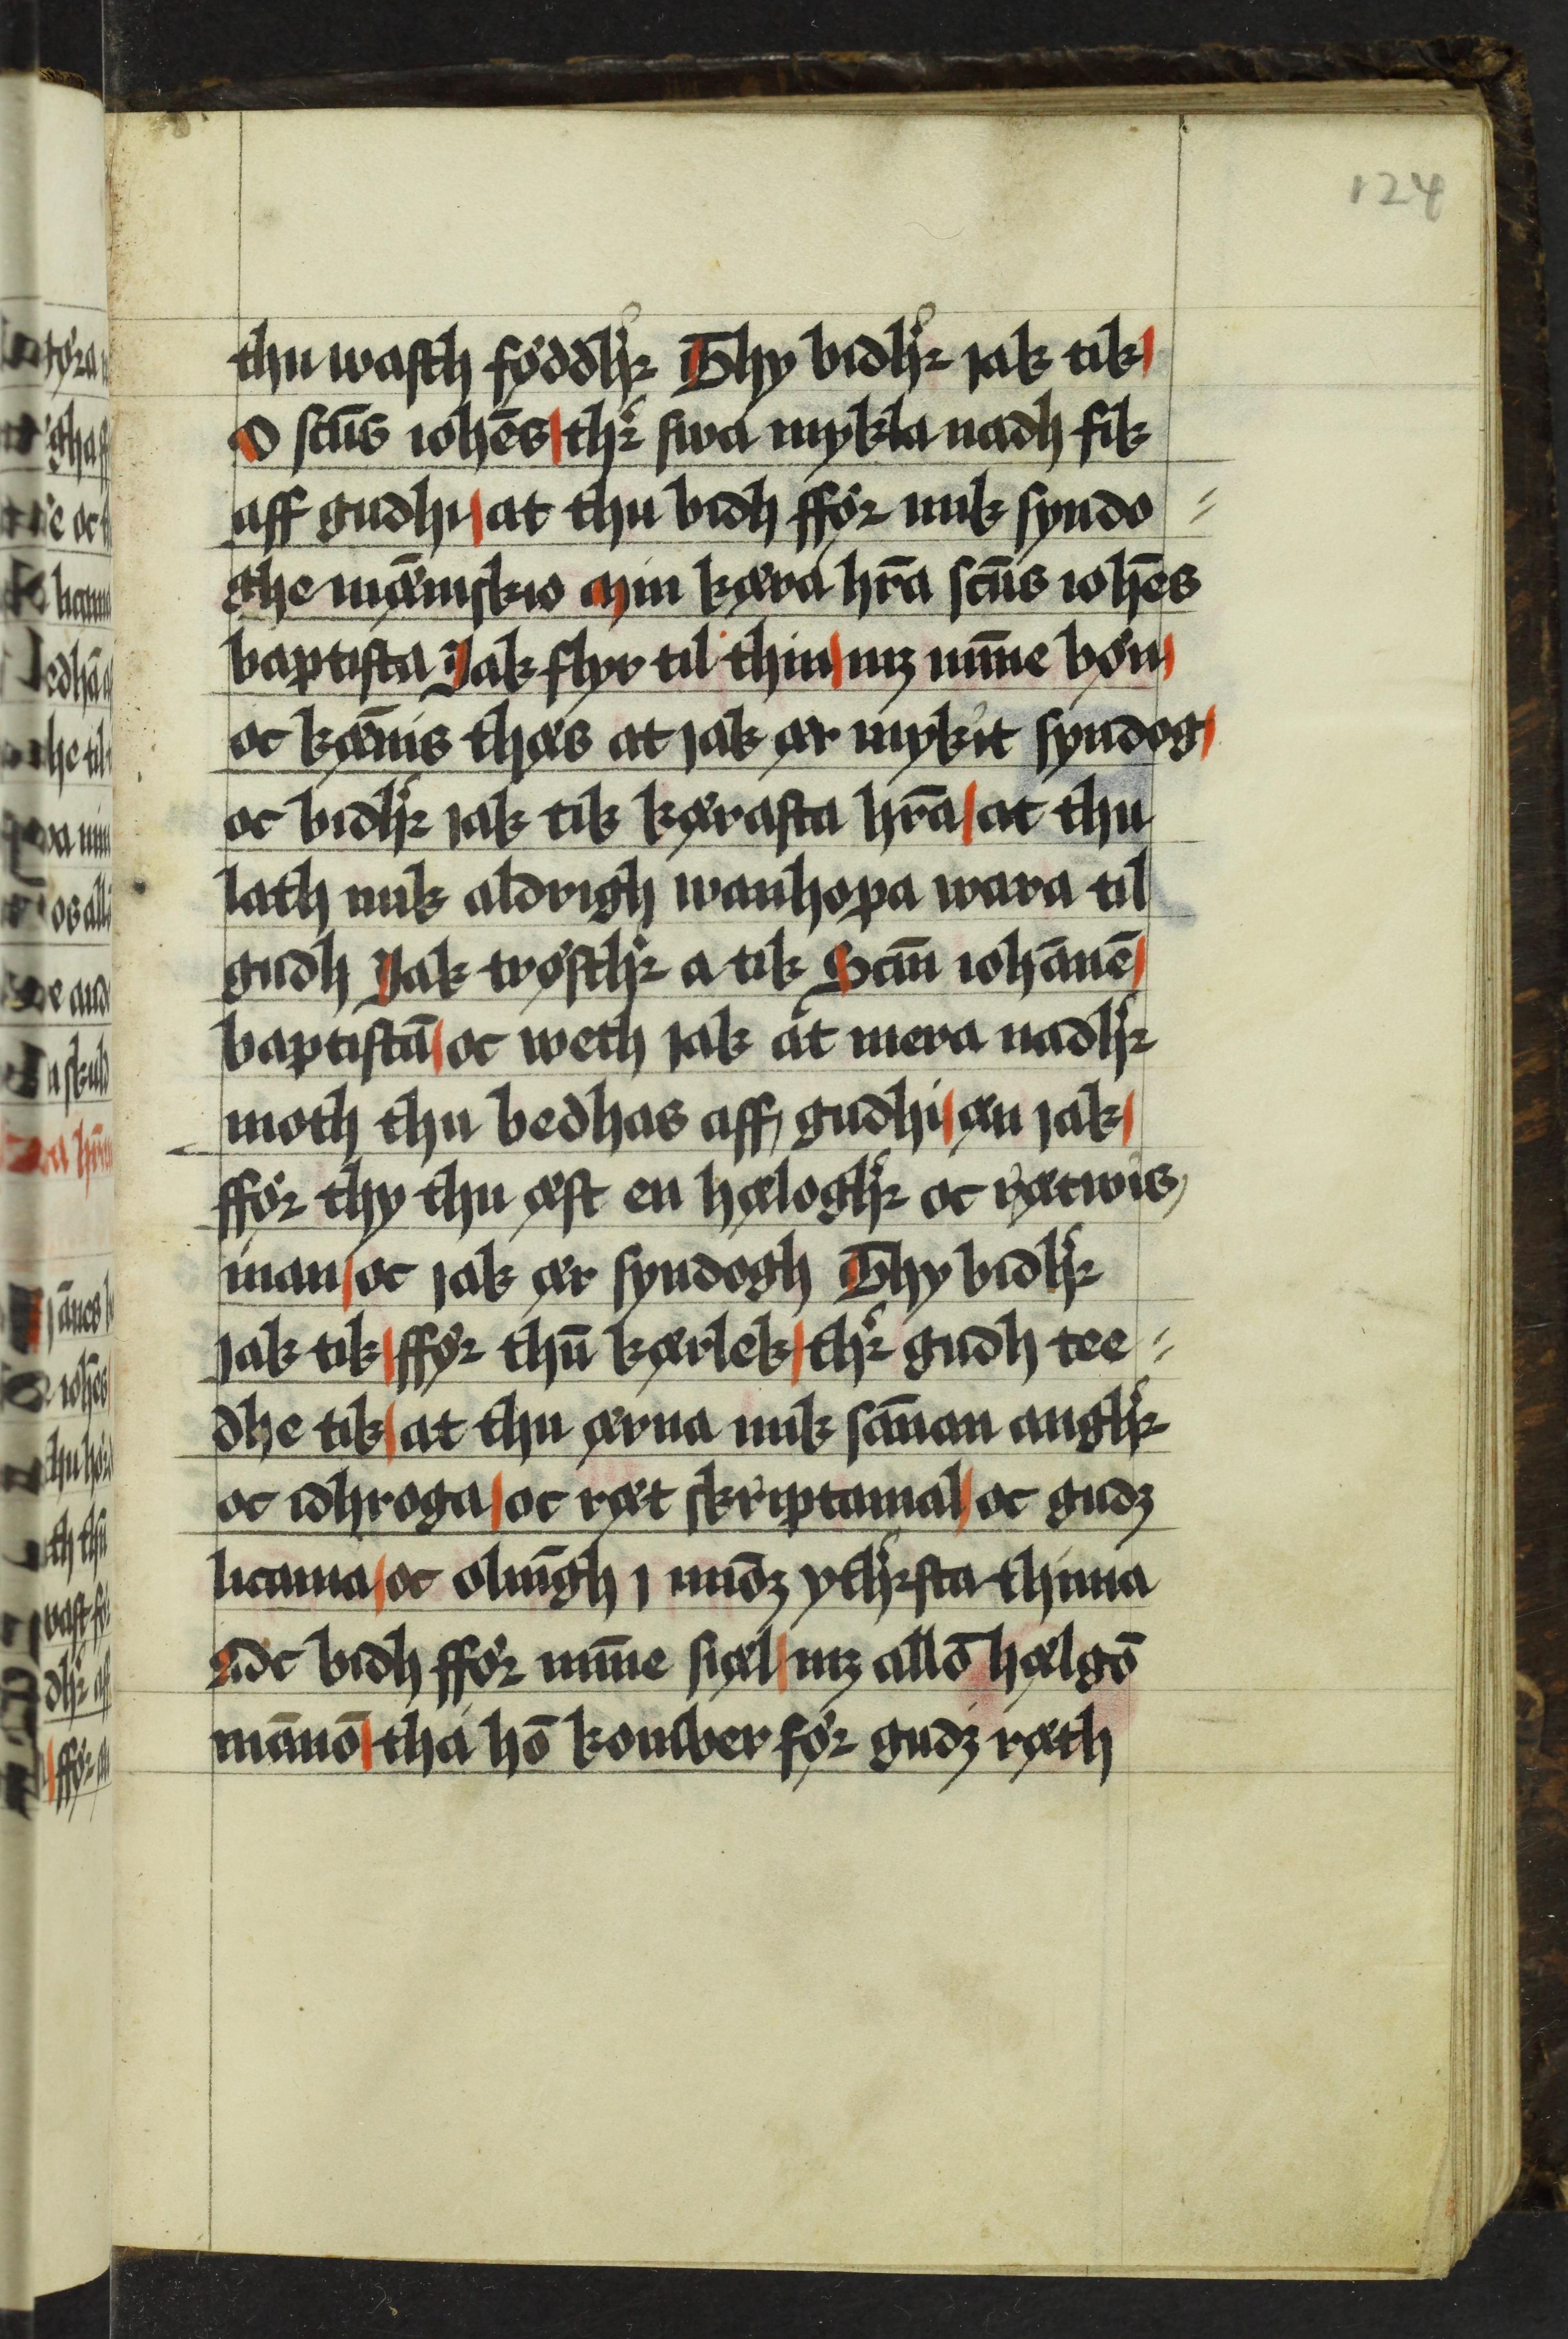 124
thu wasth föddh̓r Thy bidh̓r jak tik
O sct̄us ioh̄es th̓r swa mykla nadh fik
aff gudhi at thu bidh ffør mik syndo
ghe mæ̅niskio Min kæra hr̄a sct̄us ioh̄es
baptista Jak flyr til thin mꝫ mīne bøn
oc kæ̅nis thæs at jak ær mykit syndog
oc bidh̓r jak tik kærasta hr̄a at thu
lath mik aldrigh wanhopa wara til
gudh Jak trøsth̓r a tik Sct̄m iohāneē
baptistā oc weth jak at mera nadh̓r
moth thu bedhas aff gudhi æn jak
ffør thy thu æst en hælogh̓r oc rætwis
man oc jak ær syndogh Thy bidh̓r
jak tik ffør thn̄ kærlek th̓r gudh tee
dhe tik at thu ærna mik sānan angh̓r
oc idhroga oc ræt skriptamal oc gudꝫ
licama oc olnīgh j midꝫ yth̓rsta thima
Oc bidh ffør mīne siæl mꝫ allō hælgō
mānō tha hō komber før gudꝫ ræth